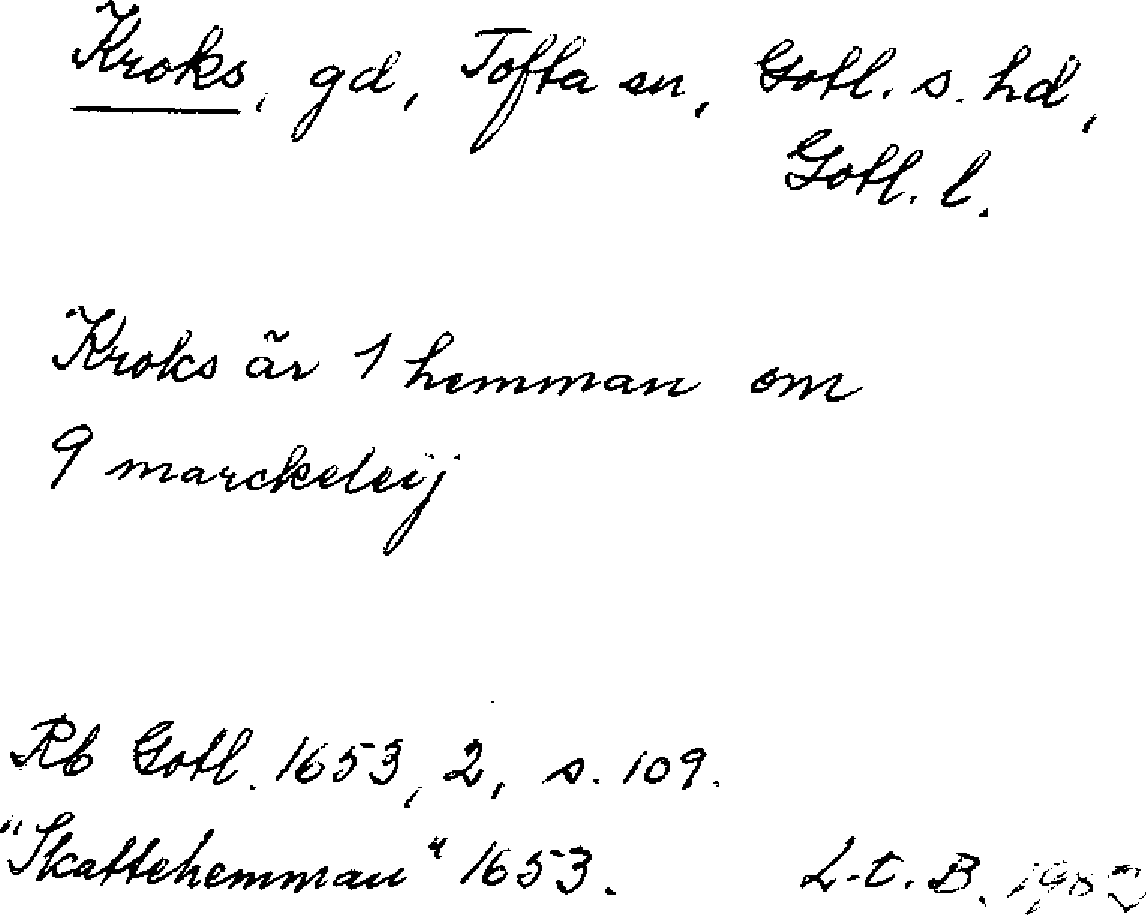 Kroks, gd, Tofta sn, Gotl. s. hd,
Gotl. l.
Kroks är 1 hemman om
9 marckeleij
Rb Gotl. 1653, 2, s. 109.
"Skattehemman" 1653. L-t. B.